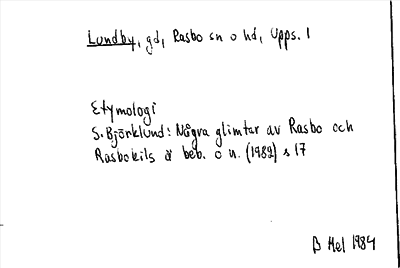 Lundby, gd, Rasbo sn o hd, Upps. l
Etymologi
S. Björklund: Några glimtar av Rasbo och
Rasbokils ä beb. o n. (1982) s 17
B Mel 1984